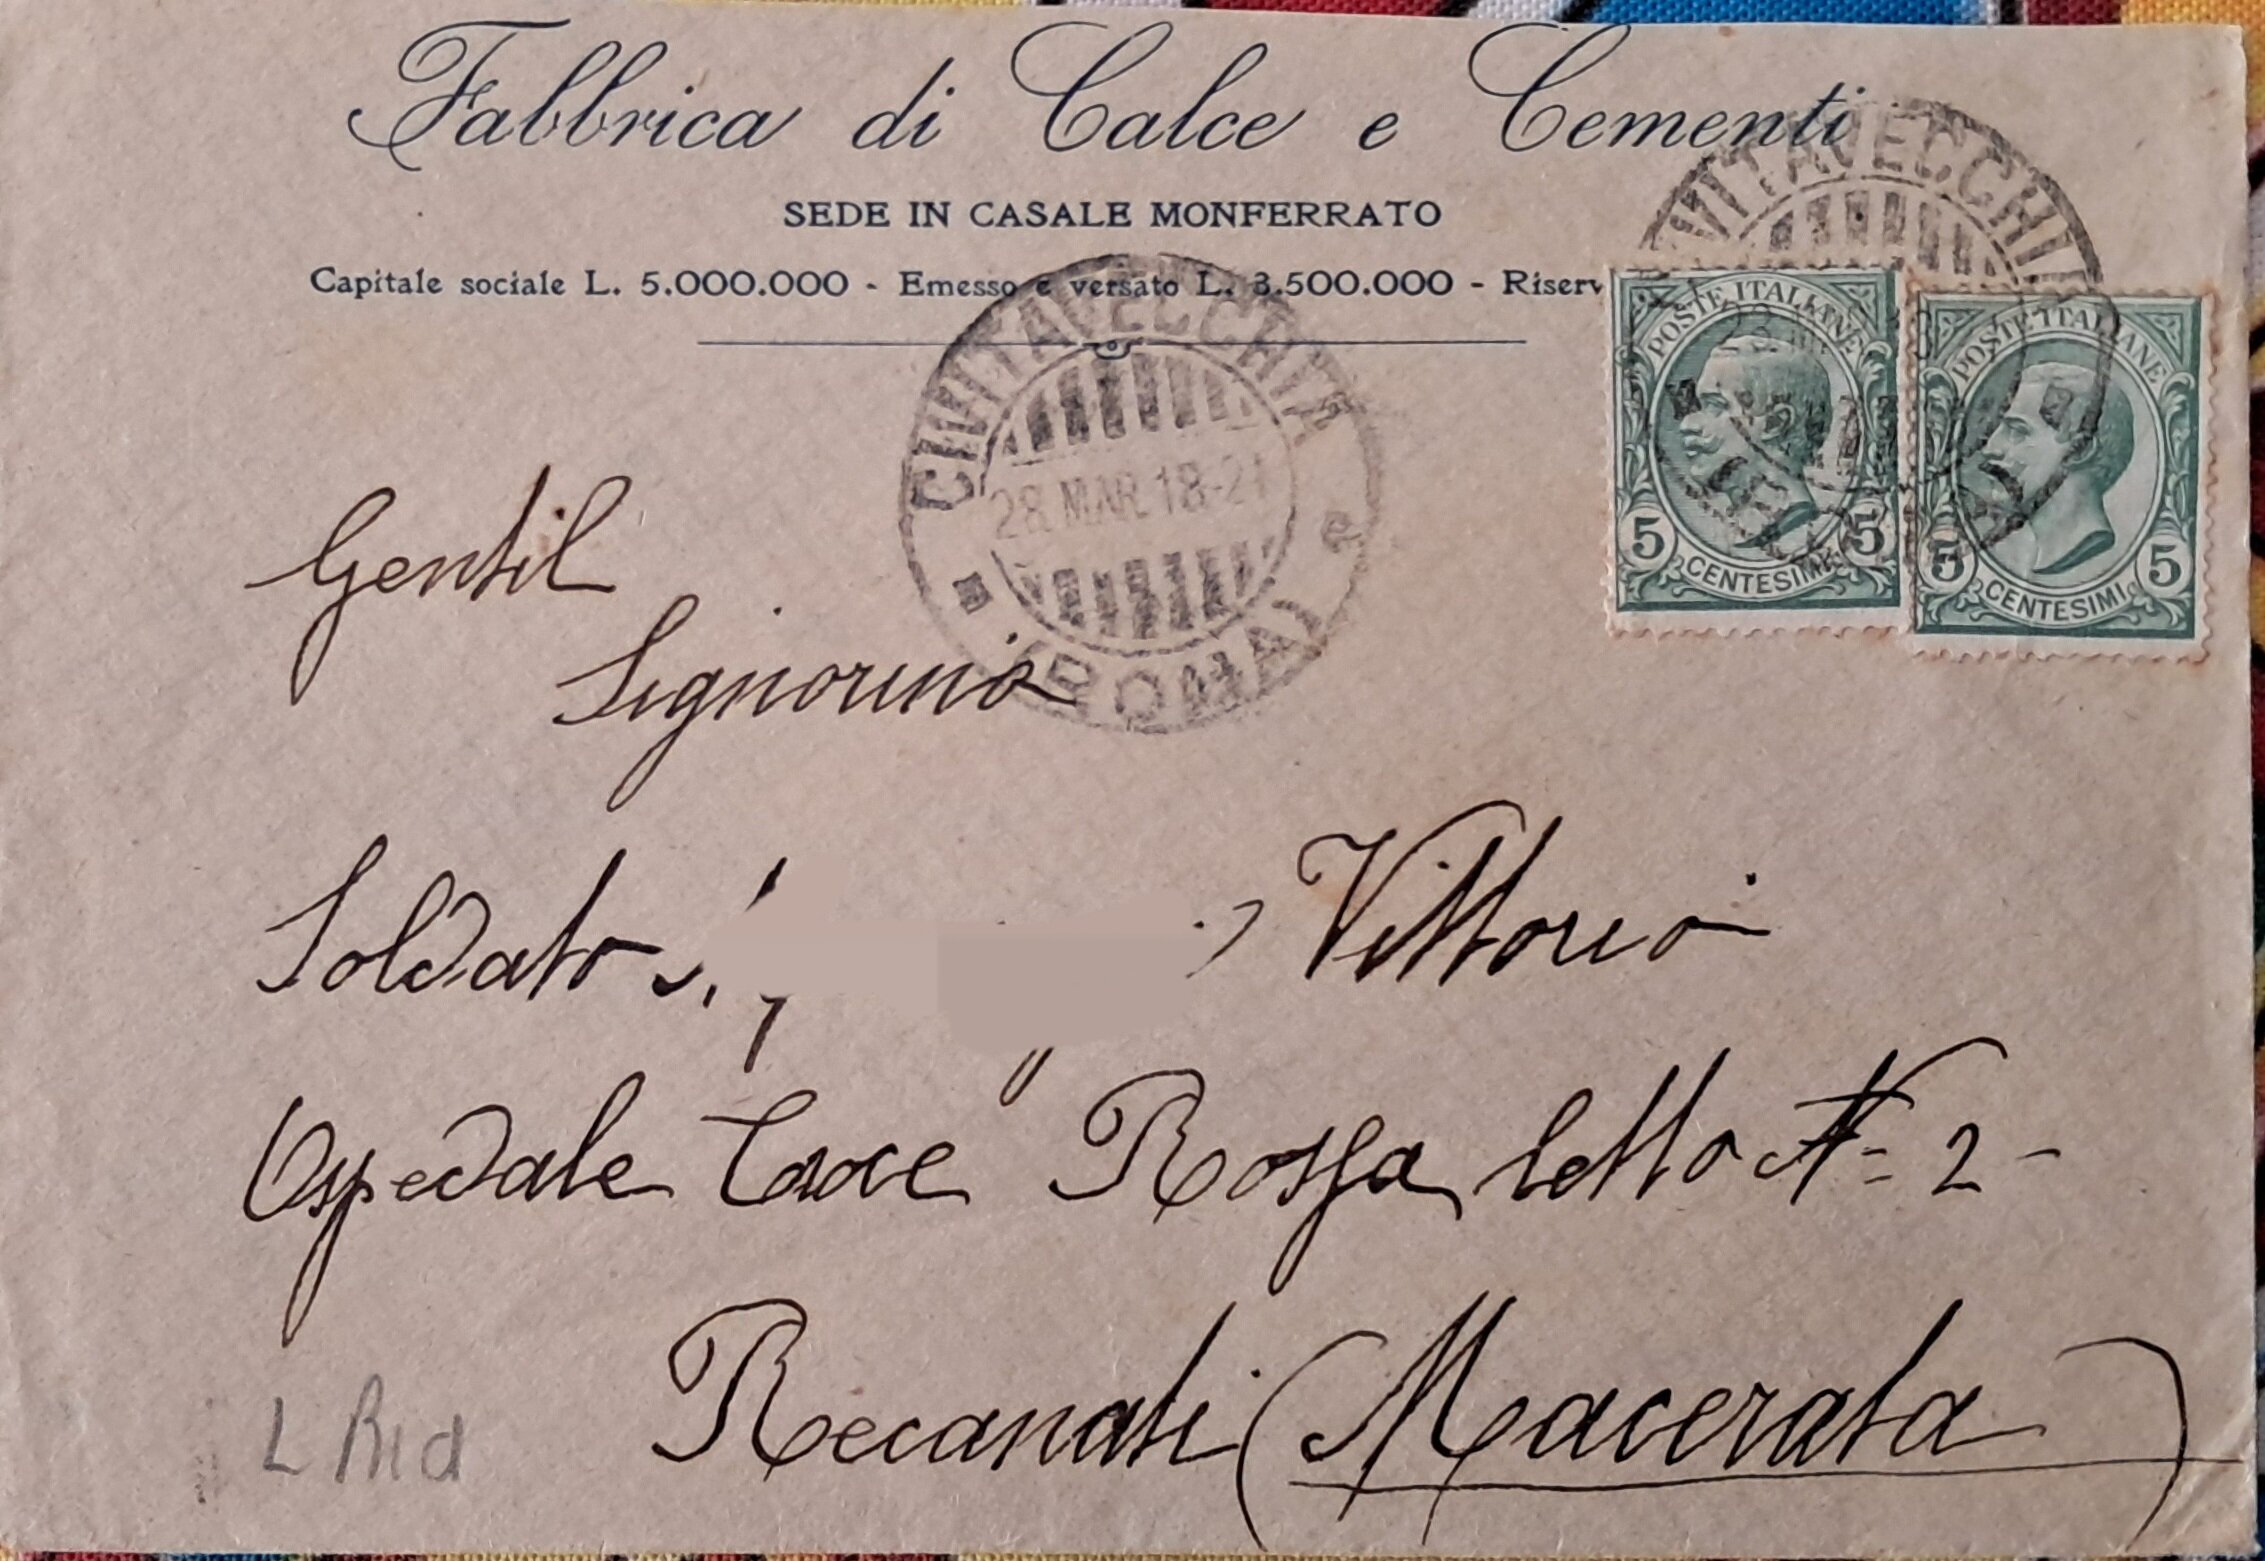 Fabbrica di Calce e Cementi
SEDE IN CASALE MONFERRATO
Capitale sociale L. 5.000.000 - Emesso e versato L. 3.500.000 - Riserv
CIVITAVECCHIA
28 MAR 18-21
(ROMA)
CIVITAVECCHIA
POSTE ITALIANE
5 CENTESIMI 5
POSTE ITALIANE
5 CENTESIMI 5
Gentil
Signorina
Soldato Vittorio
Ospedale Croce Rossa letto N= 2-
Recanati (Macerata)